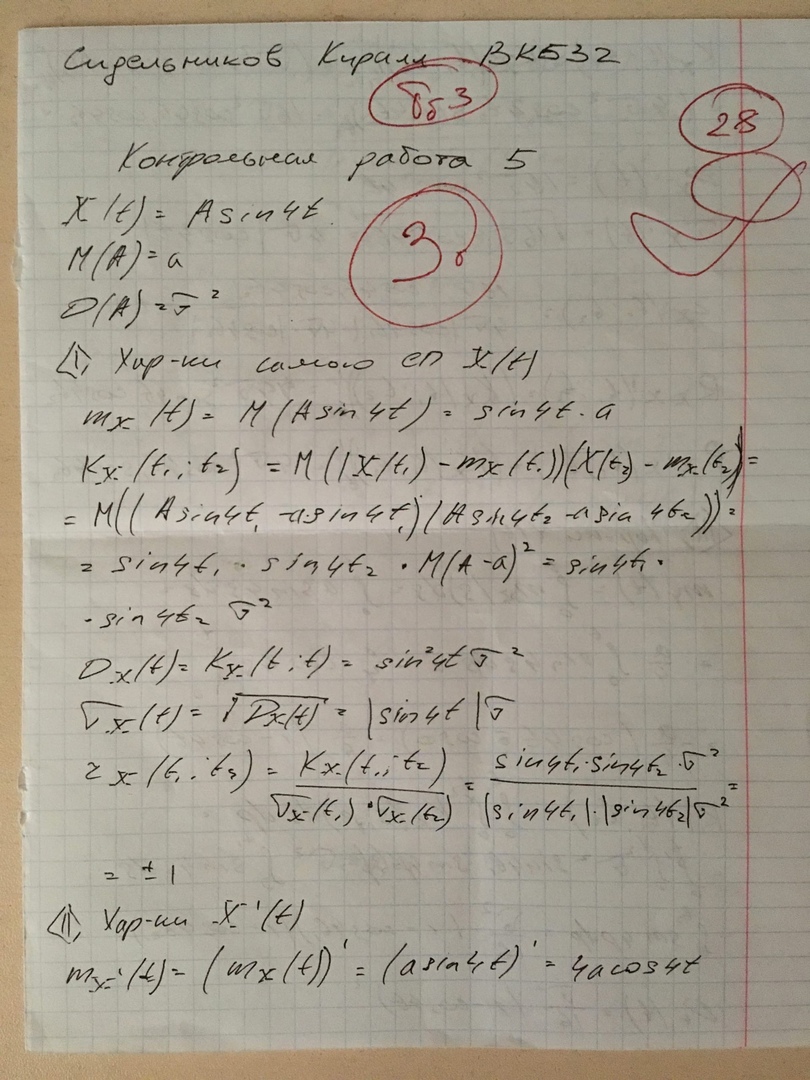 Сидельников Кирилл ВКБ32
28
Контрольная работа 5
X(t) = A sin4t
M(A) = a
3б
D(A) = σ²
I, Хар-ки самого СП X(t)
mx(t) = M(A sin4t) = sin4t · a
Kx(t₁; t₂) = M((X(t₁) - mx(t₁))(X(t₂) - mx(t₂)) =
= M((A sin4t₁ - a sin4t₁)(A sin4t₂ - a sin 4t₂)) =
= sin4t₁ · sin4t₂ · M(A-a)² = sin4t₁ ·
· sin4t₂ σ²
Dx(t) = Kx(t; t) = sin²4t σ²
σx(t) = √Dx(t) = |sin4t|σ
rx(t₁; t₂) = Kx(t₁; t₂) / σx(t₁) · σx(t₂) = sin4t₁ · sin4t₂ · σ² / |sin4t₁| · |sin4t₂|σ² =
= ± 1
II, Хар-ки X'(t)
mx'(t) = (mx(t))' = (a sin4t)' = 4a cos4t